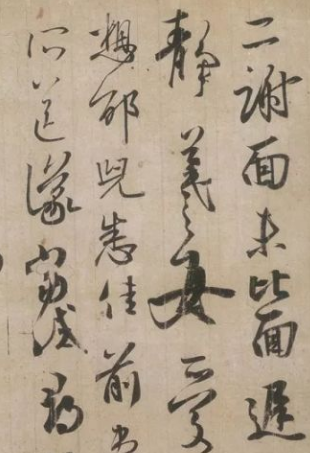 二謝面未比面遲
靜羲之女愛
想邰兒悉佳前
所送議當試尋